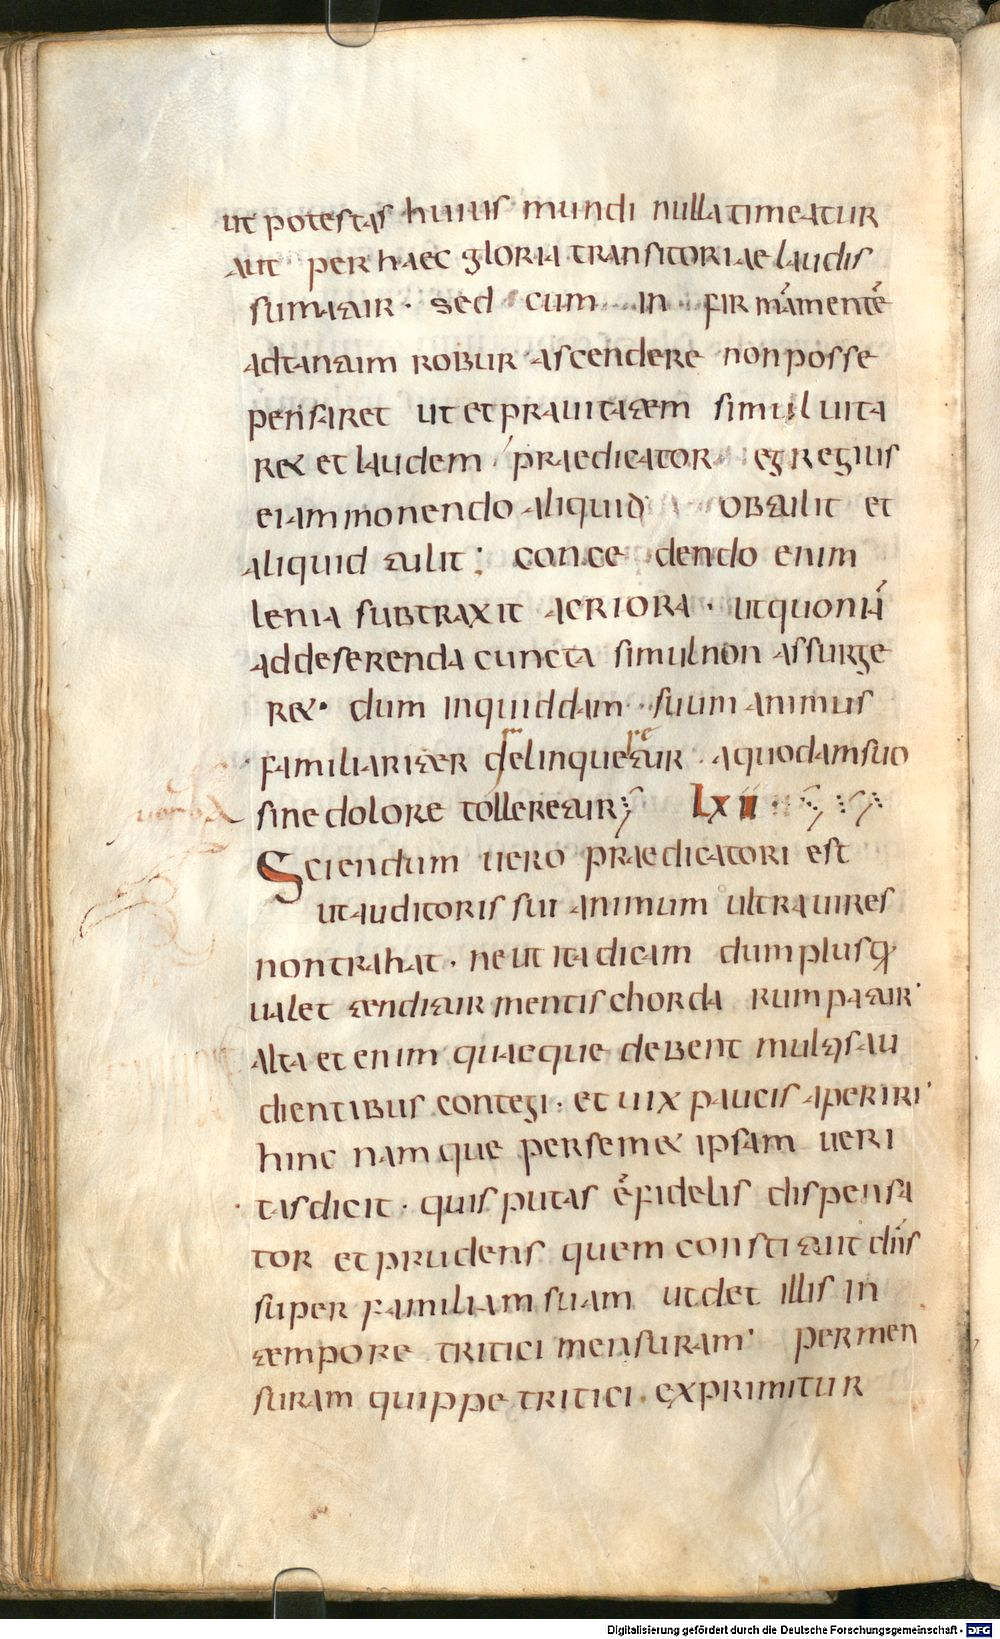 ut potestas huius mundi nulla timeatur
aut per haec gloria transitoriae laudis
sumatur · sed cum in firmamente
ad tantum robur ascendere non posse
pensaret ut et prauitatem simul uita
ret et laudem · praedicator egregius
ei ammonendo aliquid obtulit et
aliquid tulit ; concedendo enim
lenia subtraxit acriora · ut quoniā
ad deserenda cuncta simul non assurge
ret · dum in quiddam suum animus
familiariter delinqueretur · a quodam suo
sine dolore tolleretur ; lxii
Sciendum uero praedicatori est
ut auditoris sui animum ultra uires
non trahat · ne ut ita dicam dum plusq̄
ualet tenditur mentis chorda rumpatur ·
alta et enim quaeque debent multis au
dientibus contegi · et uix paucis aperiri ·
hinc namque per semet ipsam ueri
tas dicit · quis putas ē fidelis dispensa
tor et prudens quem constituit dn̄s
super familiam suam ut det illis in
tempore tritici mensuram · per men
suram quippe tritici · exprimitur
Digitalisierung gefördert durch die Deutsche Forschungsgemeinschaft - DFG